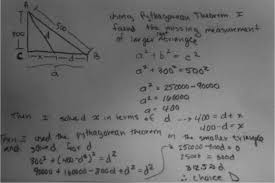 A
500
300
d
d
C
x
B
a
Using Pythagorean Theorem I
found the missing measurement
of larger triangle
a² + b² = c²
a² + 300² = 500²
a² = 250000 - 90000
a² = 160000
a = 400
Then I solved x in terms of d → 400 = d + x
400 - d = x
Then I used the pythagorean theorem in the smaller triangle
and solved for d
300² + (400 - d)² = d²
90000 + 160000 - 800d + d² = d²
250000 - 800d = 0
250000 = 800d
312.5 = d
∴ choice D